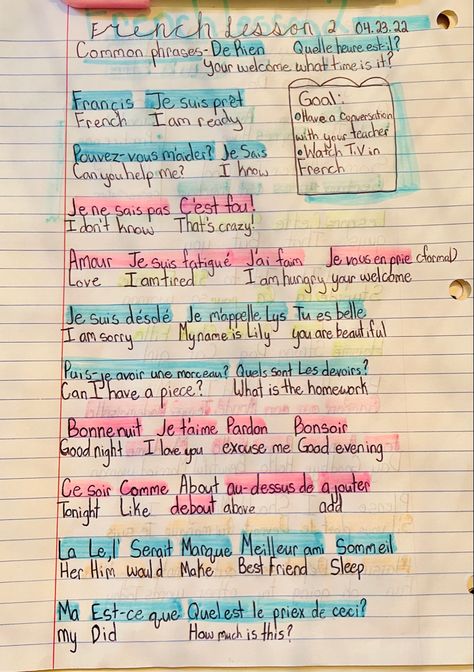 French Lesson 2 04.23.22
Common phrases- De Rien Quelle heure est-il?
Your welcome what time is it?
Francis Je suis prêt
French I am ready
Goal:
•Have a conversation
with your teacher
•Watch T.V in
French
Pouvez-vous m'aider? Je Sais
Can you help me? I know
Je ne sais pas C'est fou!
I don't know That's crazy!
Amour Je suis fatigué J'ai faim Je vous en prie (formal)
Love I am tired I am hungry your welcome
Je suis désolé Je m'appelle Lys Tu es belle
I am sorry My name is Lily you are beautiful
Puis-je avoir une morceau? Quels sont Les devoirs?
Can I have a piece? What is the homework
Bonne nuit Je t'aime Pardon Bonsoir
Good night I love you excuse me Good evening
Ce soir Comme About au-dessus de ajouter
Tonight Like debout above add
La Le,l' Serait Marque Meilleur ami Sommeil
Her Him would Make Best Friend Sleep
Ma Est-ce que Quel est le priex de ceci?
my Did How much is this?